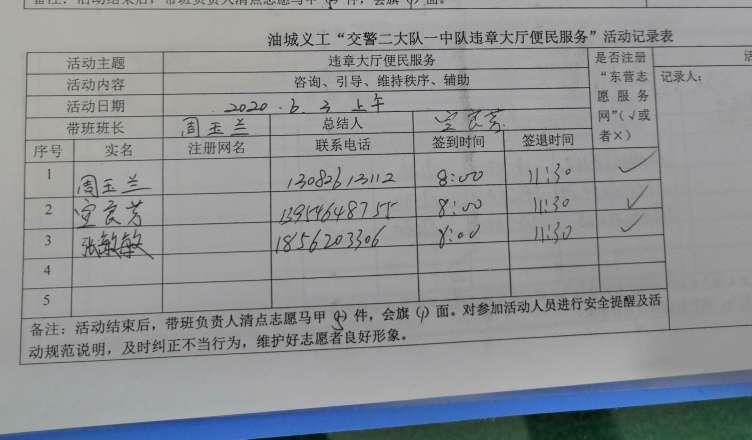 备注：活动结束后，带班负责人清点志愿马甲 件，会旗 面。
油城义工“交警二大队一中队违章大厅便民服务”活动记录表
活动主题 违章大厅便民服务 是否注册“东营志愿服务网”（√或者×） 活
活动内容 咨询、引导、维持秩序、辅助 记录人：
活动日期 2020.6.3 上午
带班班长 周玉兰 总结人 宝良芳
序号 实名 注册网名 联系电话 签到时间 签退时间
1 周玉兰 13082613112 8:00 11:30 √
2 宝良芳 13954648755 8:00 11:30 √
3 张敏敏 1856203306 8:00 11:30 √
4
5
备注：活动结束后，带班负责人清点志愿马甲 件，会旗（1）面。对参加活动人员进行安全提醒及活
动规范说明，及时纠正不当行为，维护好志愿者良好形象。